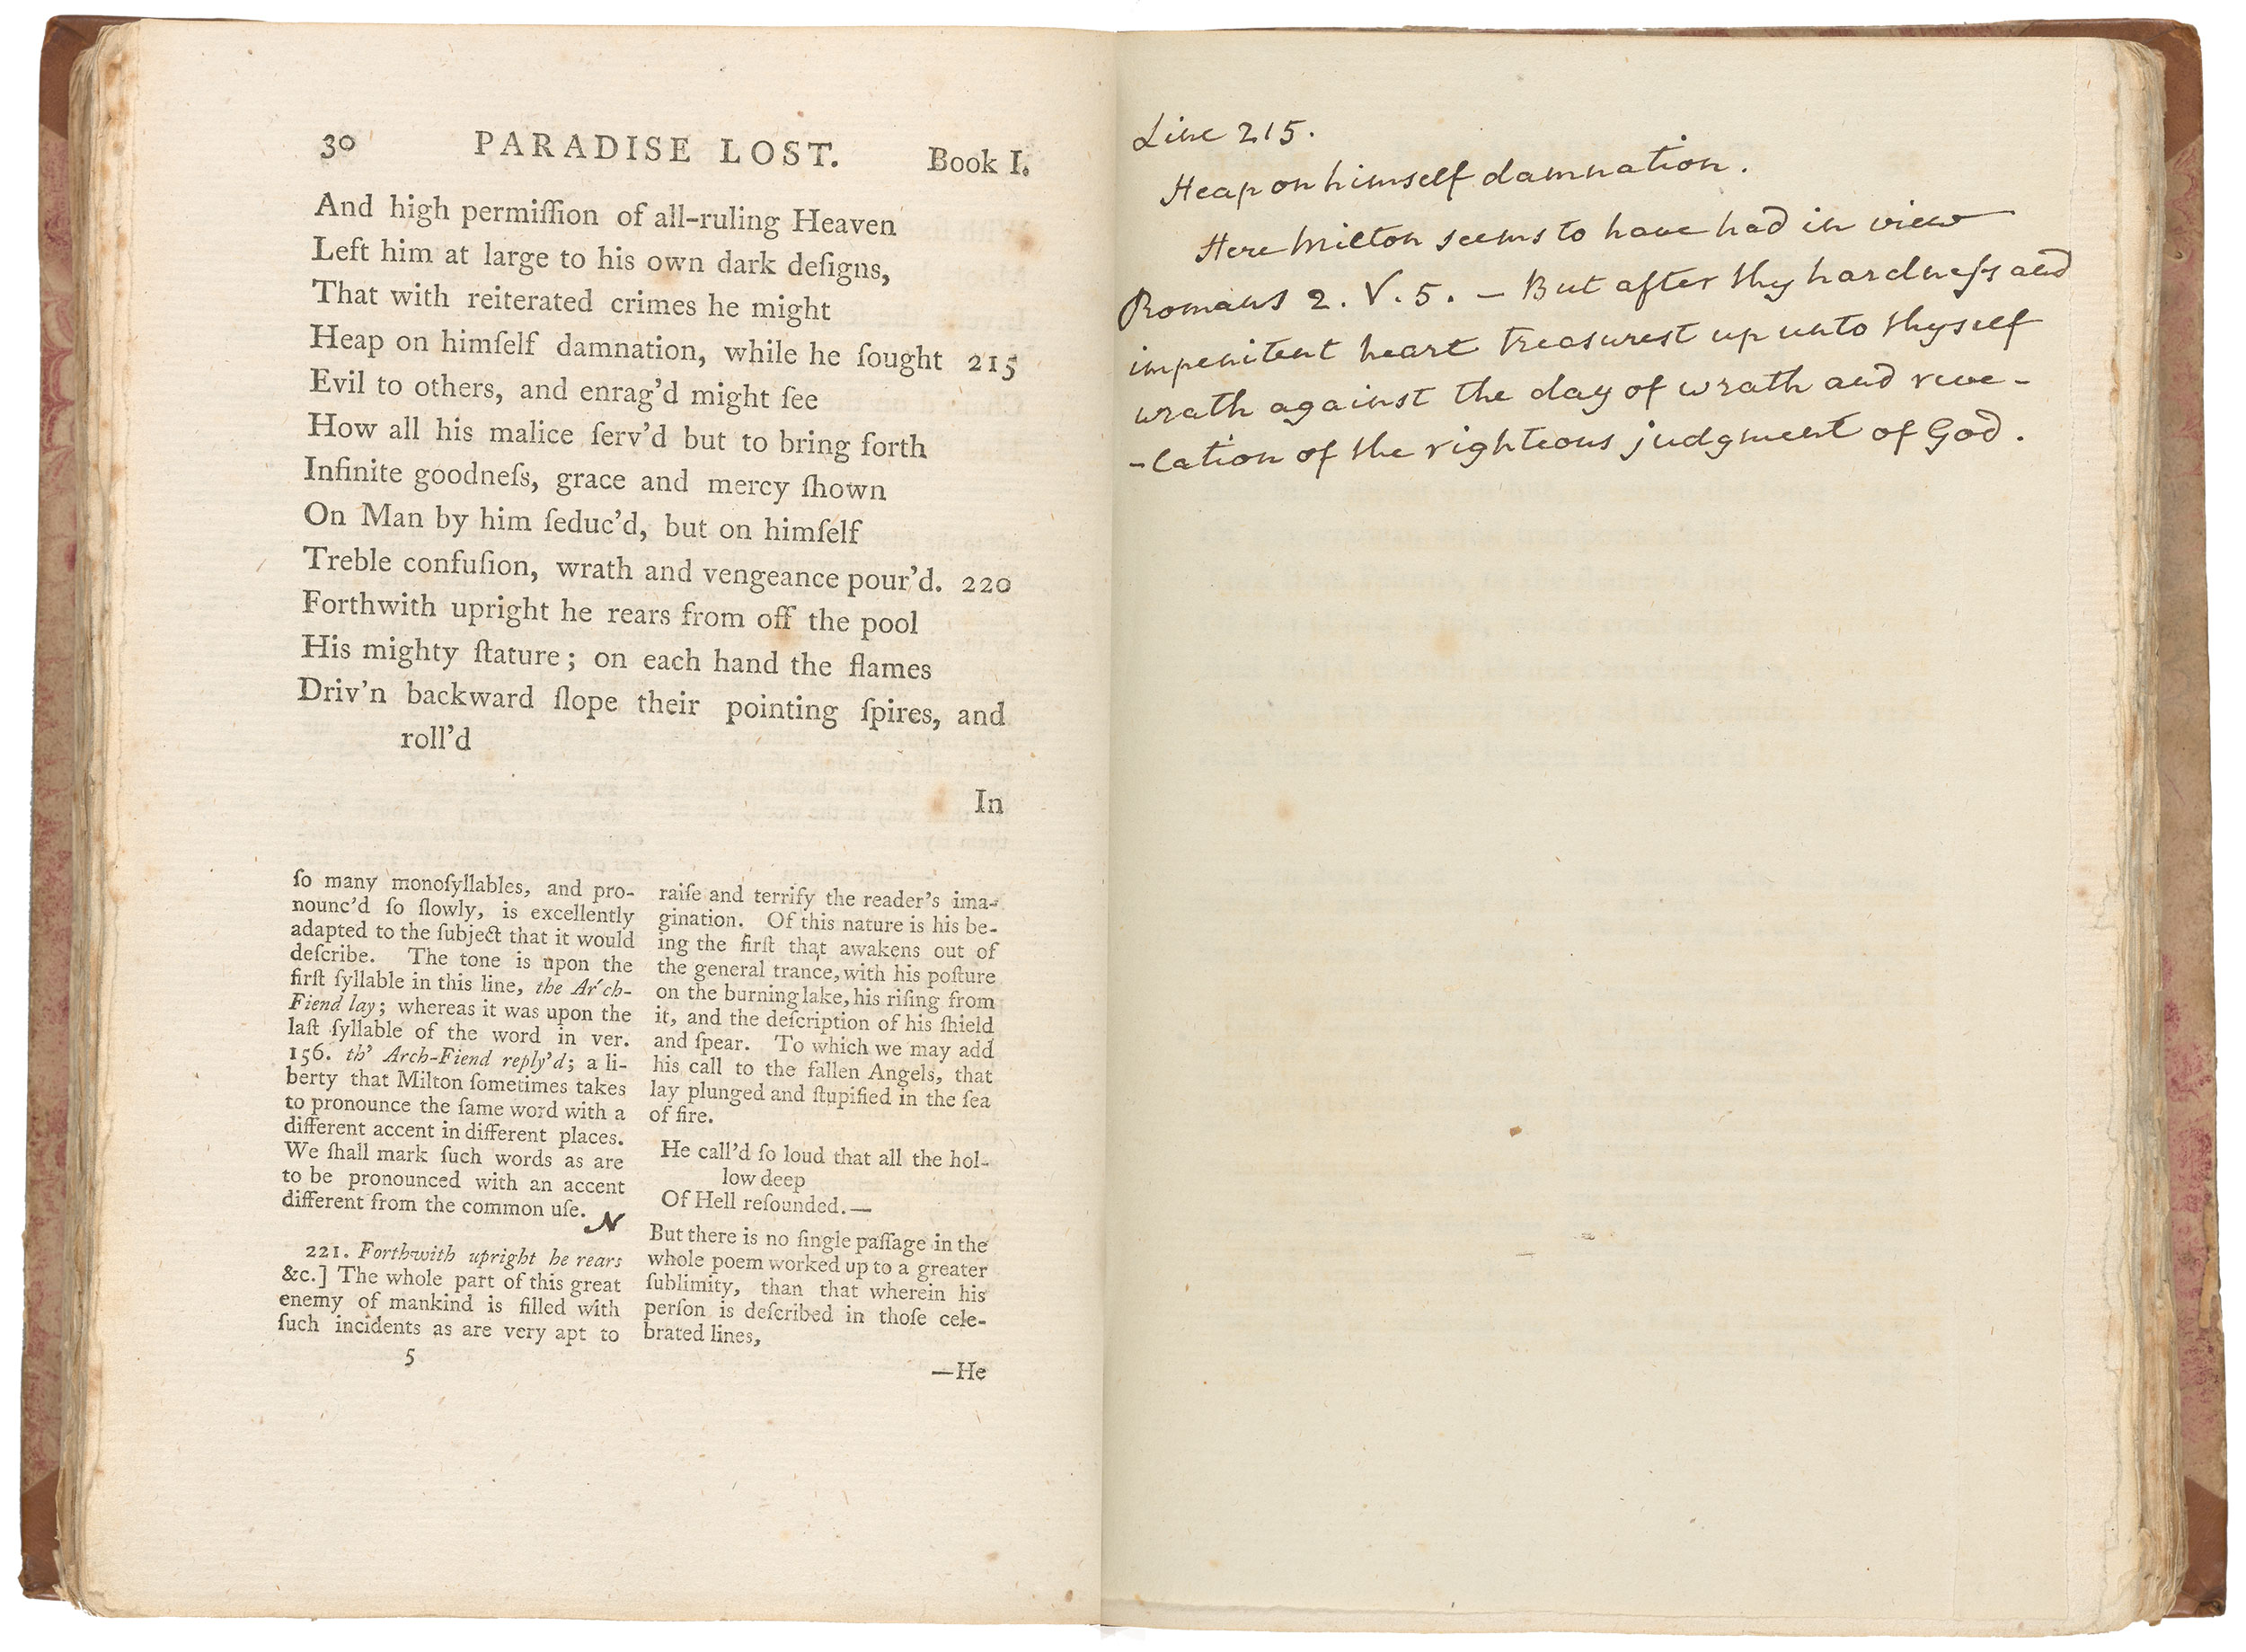 30 PARADISE LOST. Book I.
And high permiſſion of all-ruling Heaven
Left him at large to his own dark deſigns,
That with reiterated crimes he might
Heap on himſelf damnation, while he ſought 215
Evil to others, and enrag'd might ſee
How all his malice ſerv'd but to bring forth
Infinite goodneſs, grace and mercy ſhown
On Man by him ſeduc'd, but on himſelf
Treble confuſion, wrath and vengeance pour'd. 220
Forthwith upright he rears from off the pool
His mighty ſtature; on each hand the flames
Driv'n backward ſlope their pointing ſpires, and
roll'd
In
ſo many monoſyllables, and pro-
nounc'd ſo ſlowly, is excellently
adapted to the ſubject that it would
deſcribe. The tone is upon the
firſt ſyllable in this line, the Ar'ch-
Fiend lay; whereas it was upon the
laſt ſyllable of the word in ver.
156. th' Arch-Fiend reply'd; a li-
berty that Milton ſometimes takes
to pronounce the ſame word with a
different accent in different places.
We ſhall mark ſuch words as are
to be pronounced with an accent
different from the common uſe.
N
221. Forthwith upright he rears
&c.] The whole part of this great
enemy of mankind is filled with
ſuch incidents as are very apt to
5
raiſe and terrify the reader's ima-
gination. Of this nature is his be-
ing the firſt that awakens out of
the general trance, with his poſture
on the burning lake, his riſing from
it, and the deſcription of his ſhield
and ſpear. To which we may add
his call to the fallen Angels, that
lay plunged and ſtupified in the ſea
of fire.
He call'd ſo loud that all the hol-
low deep
Of Hell reſounded.—
But there is no ſingle paſſage in the
whole poem worked up to a greater
ſublimity, than that wherein his
perſon is deſcribed in thoſe cele-
brated lines,
—He
Line 215.
Heap on himself damnation.
Here Milton seems to have had in view
Romans 2. V. 5. – But after thy hardneſs and
impenitent heart treasurest up unto thyself
wrath against the day of wrath and reve-
-lation of the righteous judgment of God.